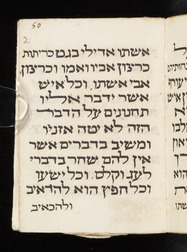 50
2
אשתו אדילי בגט כריתות
כרצון אביו ואמו וכרצון
אבי אשתו, וכל איש
אשר ידבר אליו
תחנונים על הדבר
הזה לא יטה אזניו
ומשיב בדברים אשר
אין להם שחר בדברי
לעג וקלס. וכל ישעו
וכל חפץ הוא להדאיב
ולהכאיב